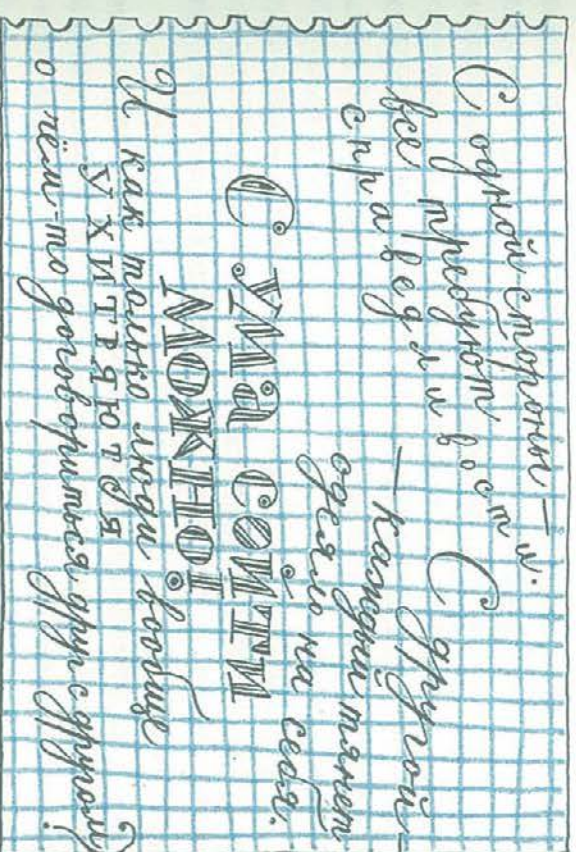 С одной стороны –
все требуют
справедливости.
С другой –
– каждый тянет
одеяло на себя.
С УМА СОЙТИ
МОЖНО!
И как только люди вообще
УХИТРЯЮТСЯ
о чём-то договориться друг с другом?!